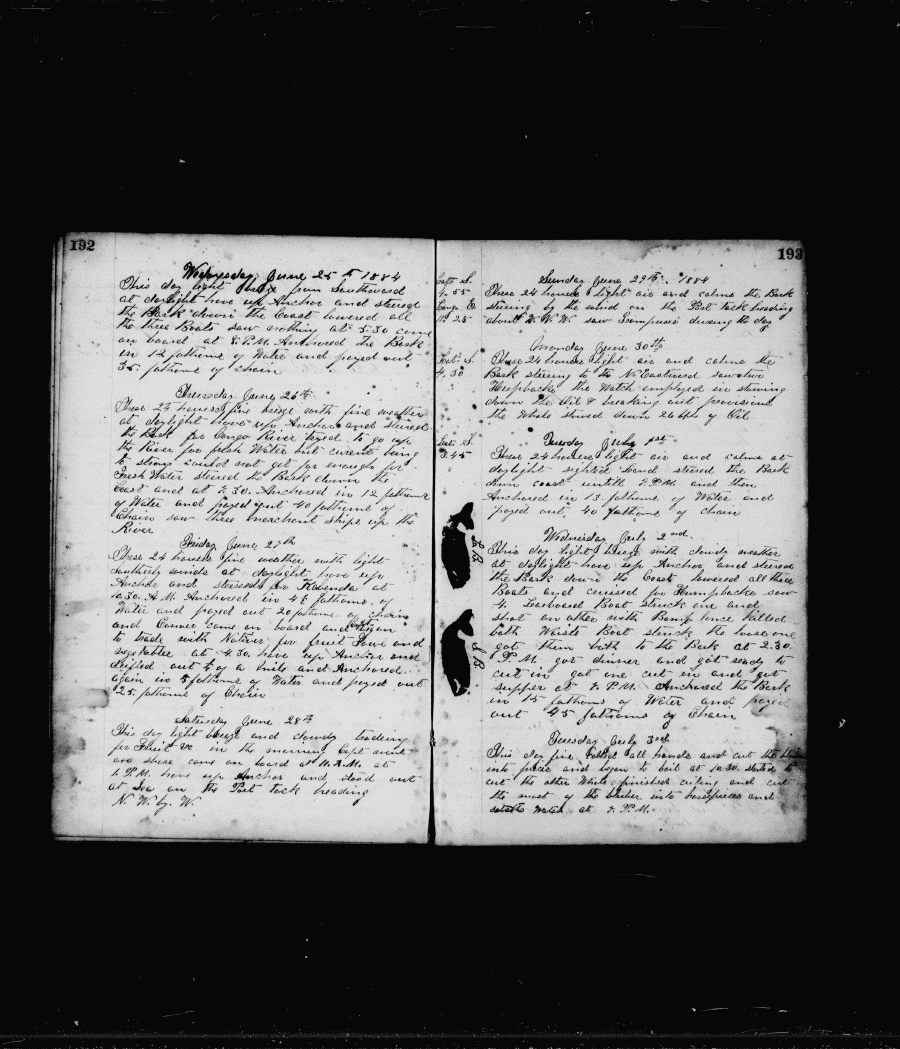 192
Wednesday June 25th 1884
This day light from Southward
at daylight hove up Anchor and steered
the Bark down the Coast lowered all
the three Boats saw nothing at 5.30 came
on board at 8. P.M. Anchored the Bark
in 12 fathoms of Water and payed out
35 fathoms of Chain
Thursday June 26th
These 24 hours fine breze with fine weather
at daylight hove up Anchor and steered
the Bark for Congo River tryed to go up
the River for fresh Water but curent being
to strong could not get far enough for
Fresh Water steered the Bark down the
Coast and at 7.30. Anchored in 12 fathoms
of Water and payed out 40 fathoms of
Chain saw three merchant ships up the
River
Friday June 27th
These 24 hours fine weather with light
southerly winds at daylight hove up
Anchor and steered for Kabenda at
10.30. A.M. Anchored in 4½ fathoms of
Water and payed out 20 fathoms of chain
and Canoes came on board and began
to trade with Natives for fruit Fowl and
vegetables at 4.30. hove up Anchor and
drifted out ½ of a mile and Anchored
again in 5 fathoms of Water and payed out
25 fathoms of Chain
Saturday June 28th
This day light breze and cloudy trading
for Fruit &c in the morning Capt went
on shore came on board at 11. A.M. at
1. P.M. hove up Anchor and stood out
at Sea on the Port tack heading
N. W. by. W.
193
Lat. S.
4.55
Longe. E.
11.25
Sunday June 29th. 1884
These 24 hours light air and calms the Bark
stering by the wind on the Port tack heading
about W. N. W. saw Grampuses during the day
Monday June 30th
Lat. S.
4.30
These 24 hours light air and calms the
Bark stering to the N. Eastward saw two
Humpbacks the Watch employed in stowing
down the Oil & breaking out provisions
the Whole stowed down 26 bbls of Oil
Tuesday July 1st
Lat. S.
3.45
These 24 hours light air and calms at
daylight sighted land steered the Bark
down coast untill 7. P.M. and then
Anchored in 13 fathoms of Water and
payed out 40 fathoms of chain
Wednesday July 2nd
This day light breze with cloudy weather
at daylight hove up Anchor and steered
the Bark down the Coast lowered all three
Boats and cruised for Humpbacks saw
4. Leaboard Boat struck one and
shot an other with Bomb lance killed
both Waiste Boat struck the loose one
got them both to the Bark at 2.30.
P.M. got dinner and got ready to
cut in got one cut in and got
supper at 7. P.M. Anchored the Bark
in 15 fathoms of Water and payed
out 45 fathoms of Chain
L B
S B
Tuesday July 3rd
This day fine called all hands and cut the
into pieces and begun to boil at 10.30. started to
cut the other Whale finished cuting and cut
the most of the bluber into horspieces and
set the Watch at 7. P.M.